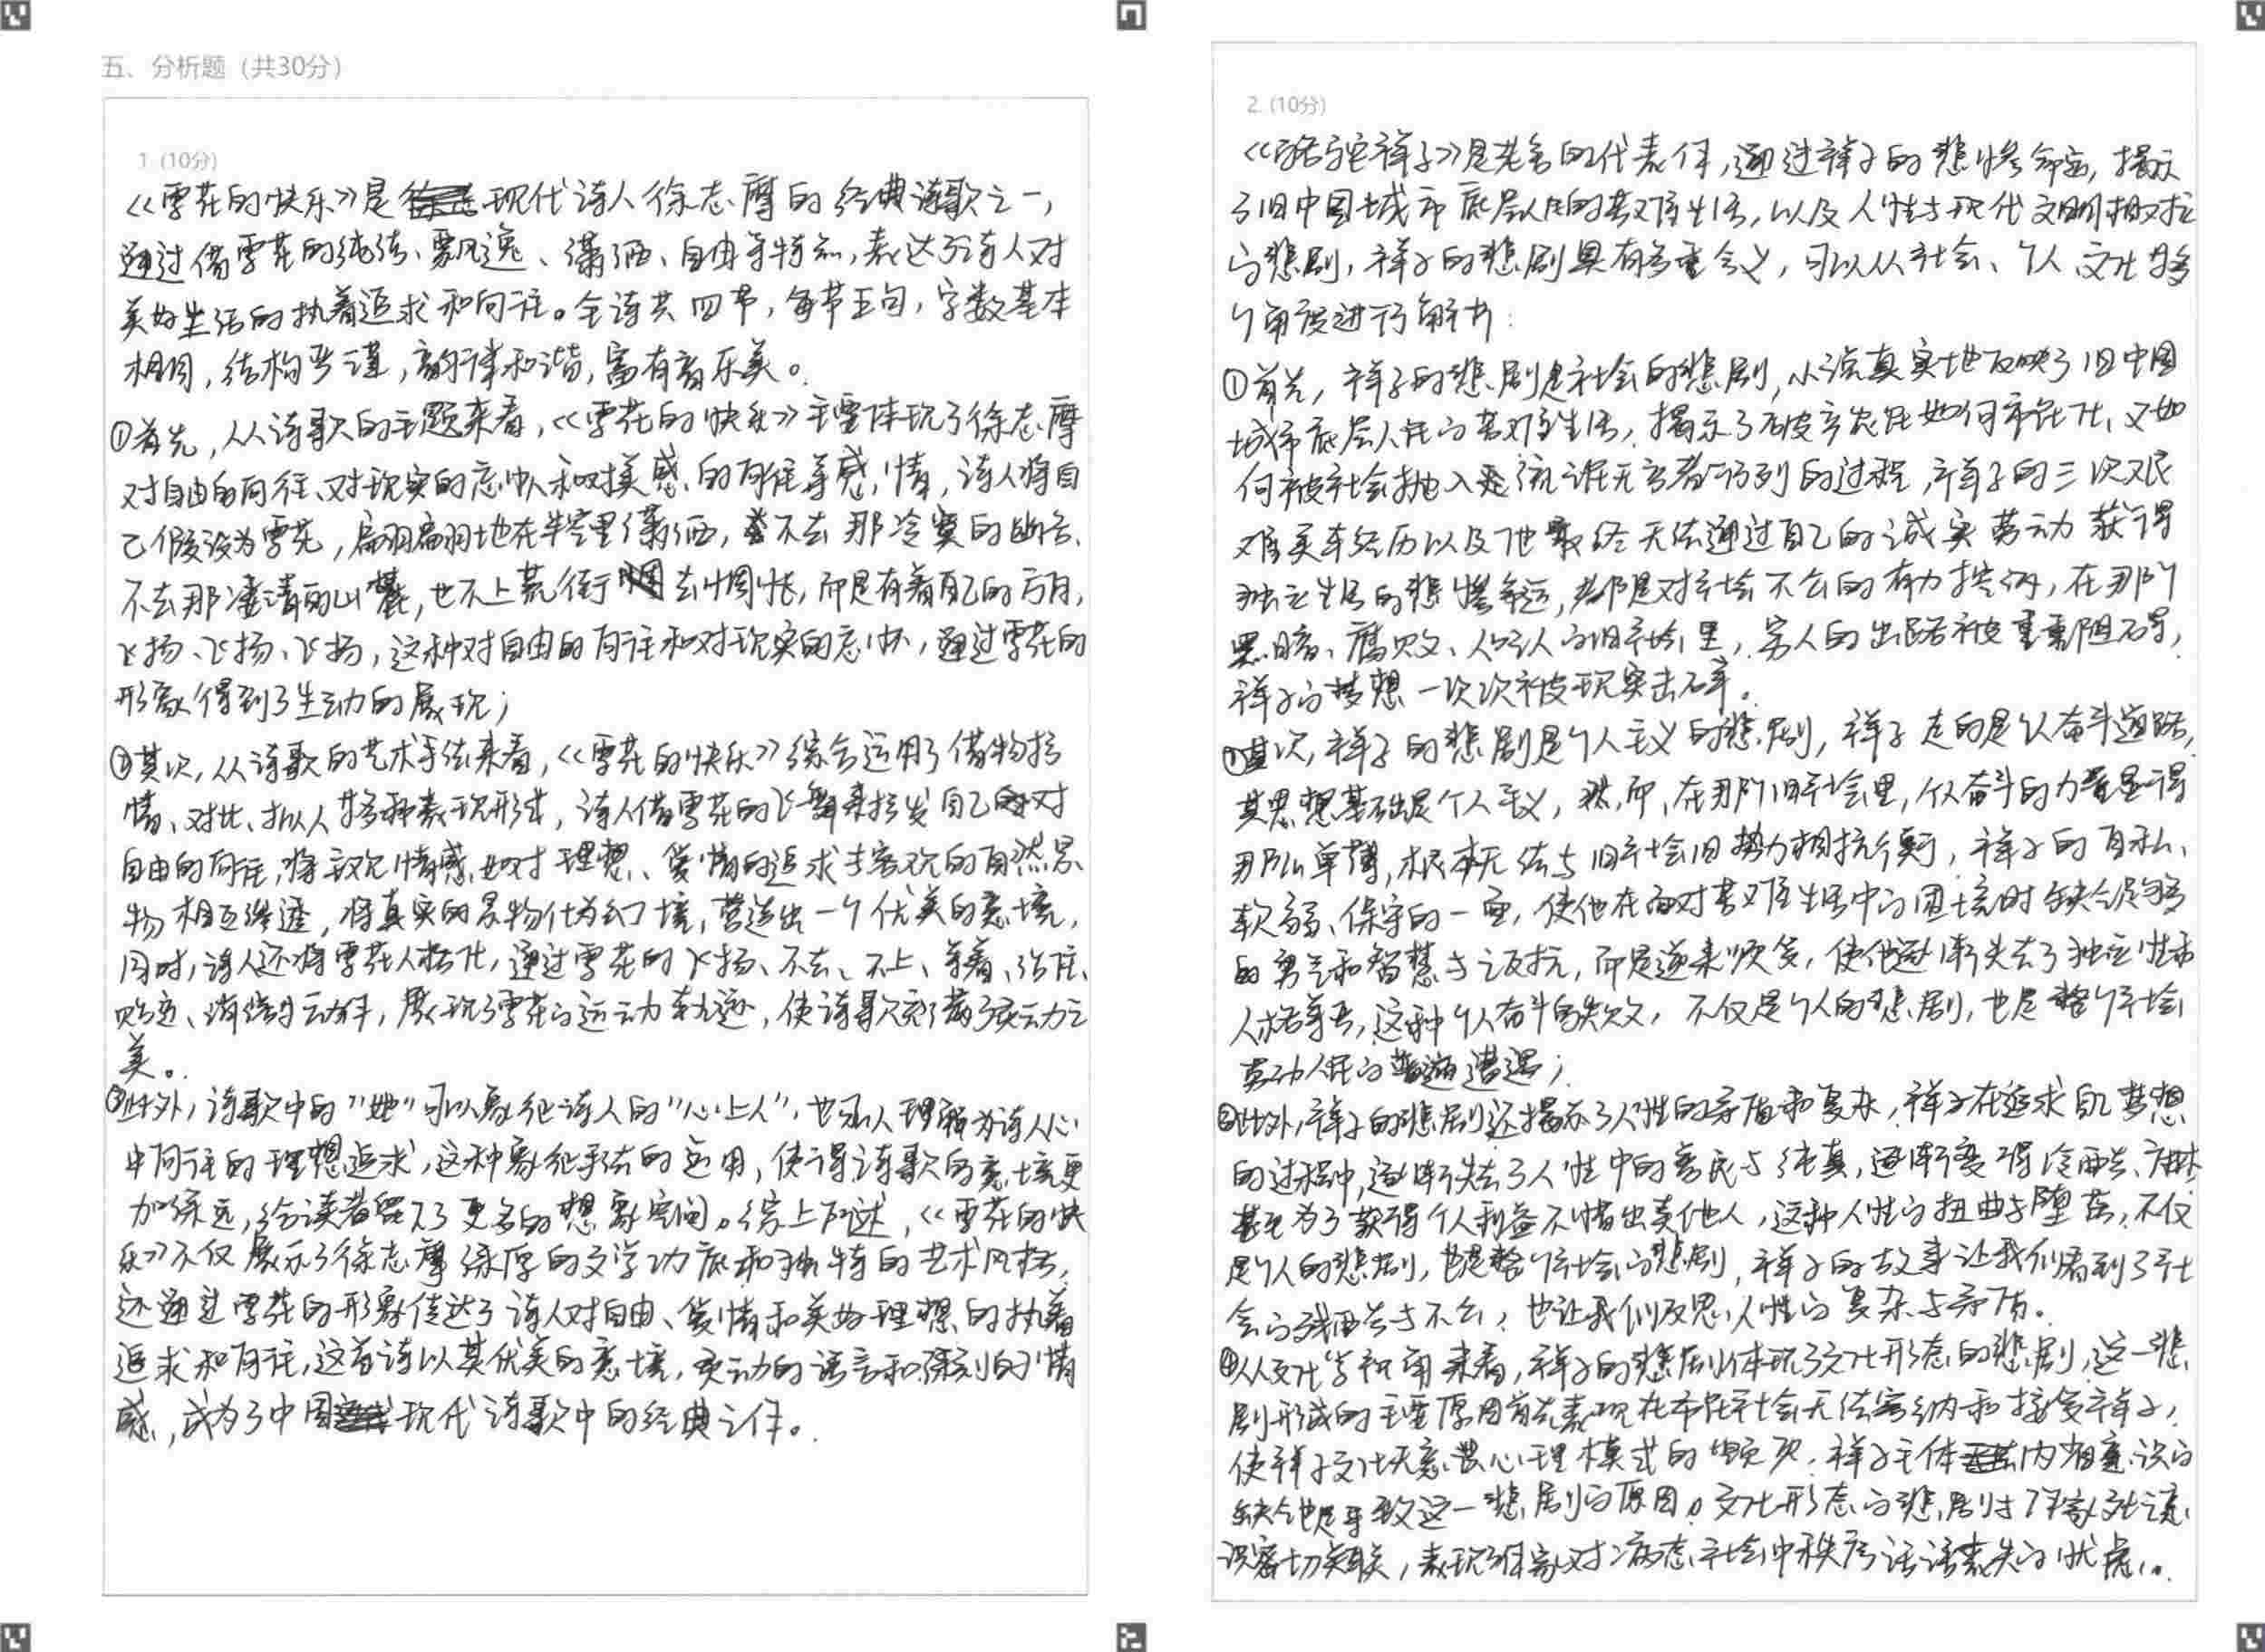 五、分析题（共30分）
1. (10分)
《雪花的快乐》是现代诗人徐志摩的经典诗歌之一，
通过借雪花的纯洁、飘逸、潇洒、自由等特点，表达了诗人对
美好生活的执着追求和向往。全诗共四节，每节五句，字数基本
相同，结构严谨，韵律和谐，富有音乐美。
①首先，从诗歌的主题来看，《雪花的快乐》主要体现了徐志摩
对自由的向往、对现实的忘怀和对美感的向往等感情，诗人将自
己假设为雪花，翩翩地在半空里潇洒，不去那冷寞的幽谷、
不去那凄清的山麓，也不上荒街去惆怅，而是有着自己的方向，
飞扬、飞扬、飞扬，这种对自由的向往和对现实的忘怀，通过雪花的
形象得到了生动的展现；
②其次，从诗歌的艺术手法来看，《雪花的快乐》综合运用了借物抒
情、对比、拟人等多种表现形式，诗人借雪花的飞舞来抒发自己对
自由的向往，将主观情感如对理想、爱情的追求与客观的自然景
物相互渗透，将真实的景物化为幻境，营造出一个优美的意境，
同时，诗人还将雪花人格化，通过雪花的飞扬、不去、不上、等着、沾住、
贴近、消溶等动作，展现了雪花的运动轨迹，使诗歌充满了灵动之
美。
③此外，诗歌中的"她"可以象征诗人的"心上人"，也可以理解为诗人心
中向往的理想追求，这种象征手法的运用，使得诗歌的意境更
加深远，给读者留下了更多的想象空间。综上所述，《雪花的快
乐》不仅展示了徐志摩深厚的文学功底和独特的艺术风格，
还通过雪花的形象传达了诗人对自由、爱情和美好理想的执着
追求和向往，这首诗以其优美的意境，灵动的语言和深刻的情
感，成为了中国现代诗歌中的经典之作。
2. (10分)
《骆驼祥子》是老舍的代表作，通过祥子的悲惨命运，揭示
了旧中国城市底层人民的苦难生活，以及人性与现代文明相对抗
的悲剧，祥子的悲剧具有多重含义，可以从社会、个人、文化等多
个角度进行解析：
①首先，祥子的悲剧是社会的悲剧，小说真实地反映了旧中国
城市底层人民的苦难生活，揭示了破产农民如何市民化、又如
何被社会抛入流氓无产者行列的过程，祥子的三次艰
难买车经历以及他最终无法通过自己的诚实劳动获得
独立生活的悲惨命运，都是对社会不公的有力控诉，在那个
黑暗、腐败、人吃人的旧社会里，穷人的出路被重重阻碍，
祥子的梦想一次次被现实击碎。
②其次，祥子的悲剧是个人主义的悲剧，祥子走的是个人奋斗道路，
其思想基础是个人主义，然而，在那个旧社会里，个人奋斗的力量显得
那么单薄，根本无法与旧社会旧势力相抗衡，祥子的自私、
软弱、保守的一面，使他在面对苦难生活中的困境时缺乏足够
的勇气和智慧与之反抗，而是逆来顺受，使他逐渐失去了独立性和
人格尊严，这种个人奋斗的失败，不仅是个人的悲剧，也是整个社会
劳动人民的普遍遭遇；
③此外，祥子的悲剧还揭示了人性的矛盾和复杂，祥子在追求自己梦想
的过程中，逐渐失去了人性中的善良与纯真，逐渐变得冷酷、麻木，
甚至为了获得个人利益不惜出卖他人，这种人性的扭曲与堕落，不仅
是个人的悲剧，也是整个社会的悲剧，祥子的故事让我们看到了社
会的残酷与不公，也让我们反思人性的复杂与矛盾。
④从文化学视角来看，祥子的悲剧体现了文化形态的悲剧，这一悲
剧形成的主要原因首先表现在市民社会无法容纳和接受祥子，
使祥子文化失意心理模式的倾死，祥子主体内省意识的
缺乏也是导致这一悲剧的原因。文化形态的悲剧与作家文化意
识密切关联，表现了作家对病态社会中秩序话语丧失的忧虑。